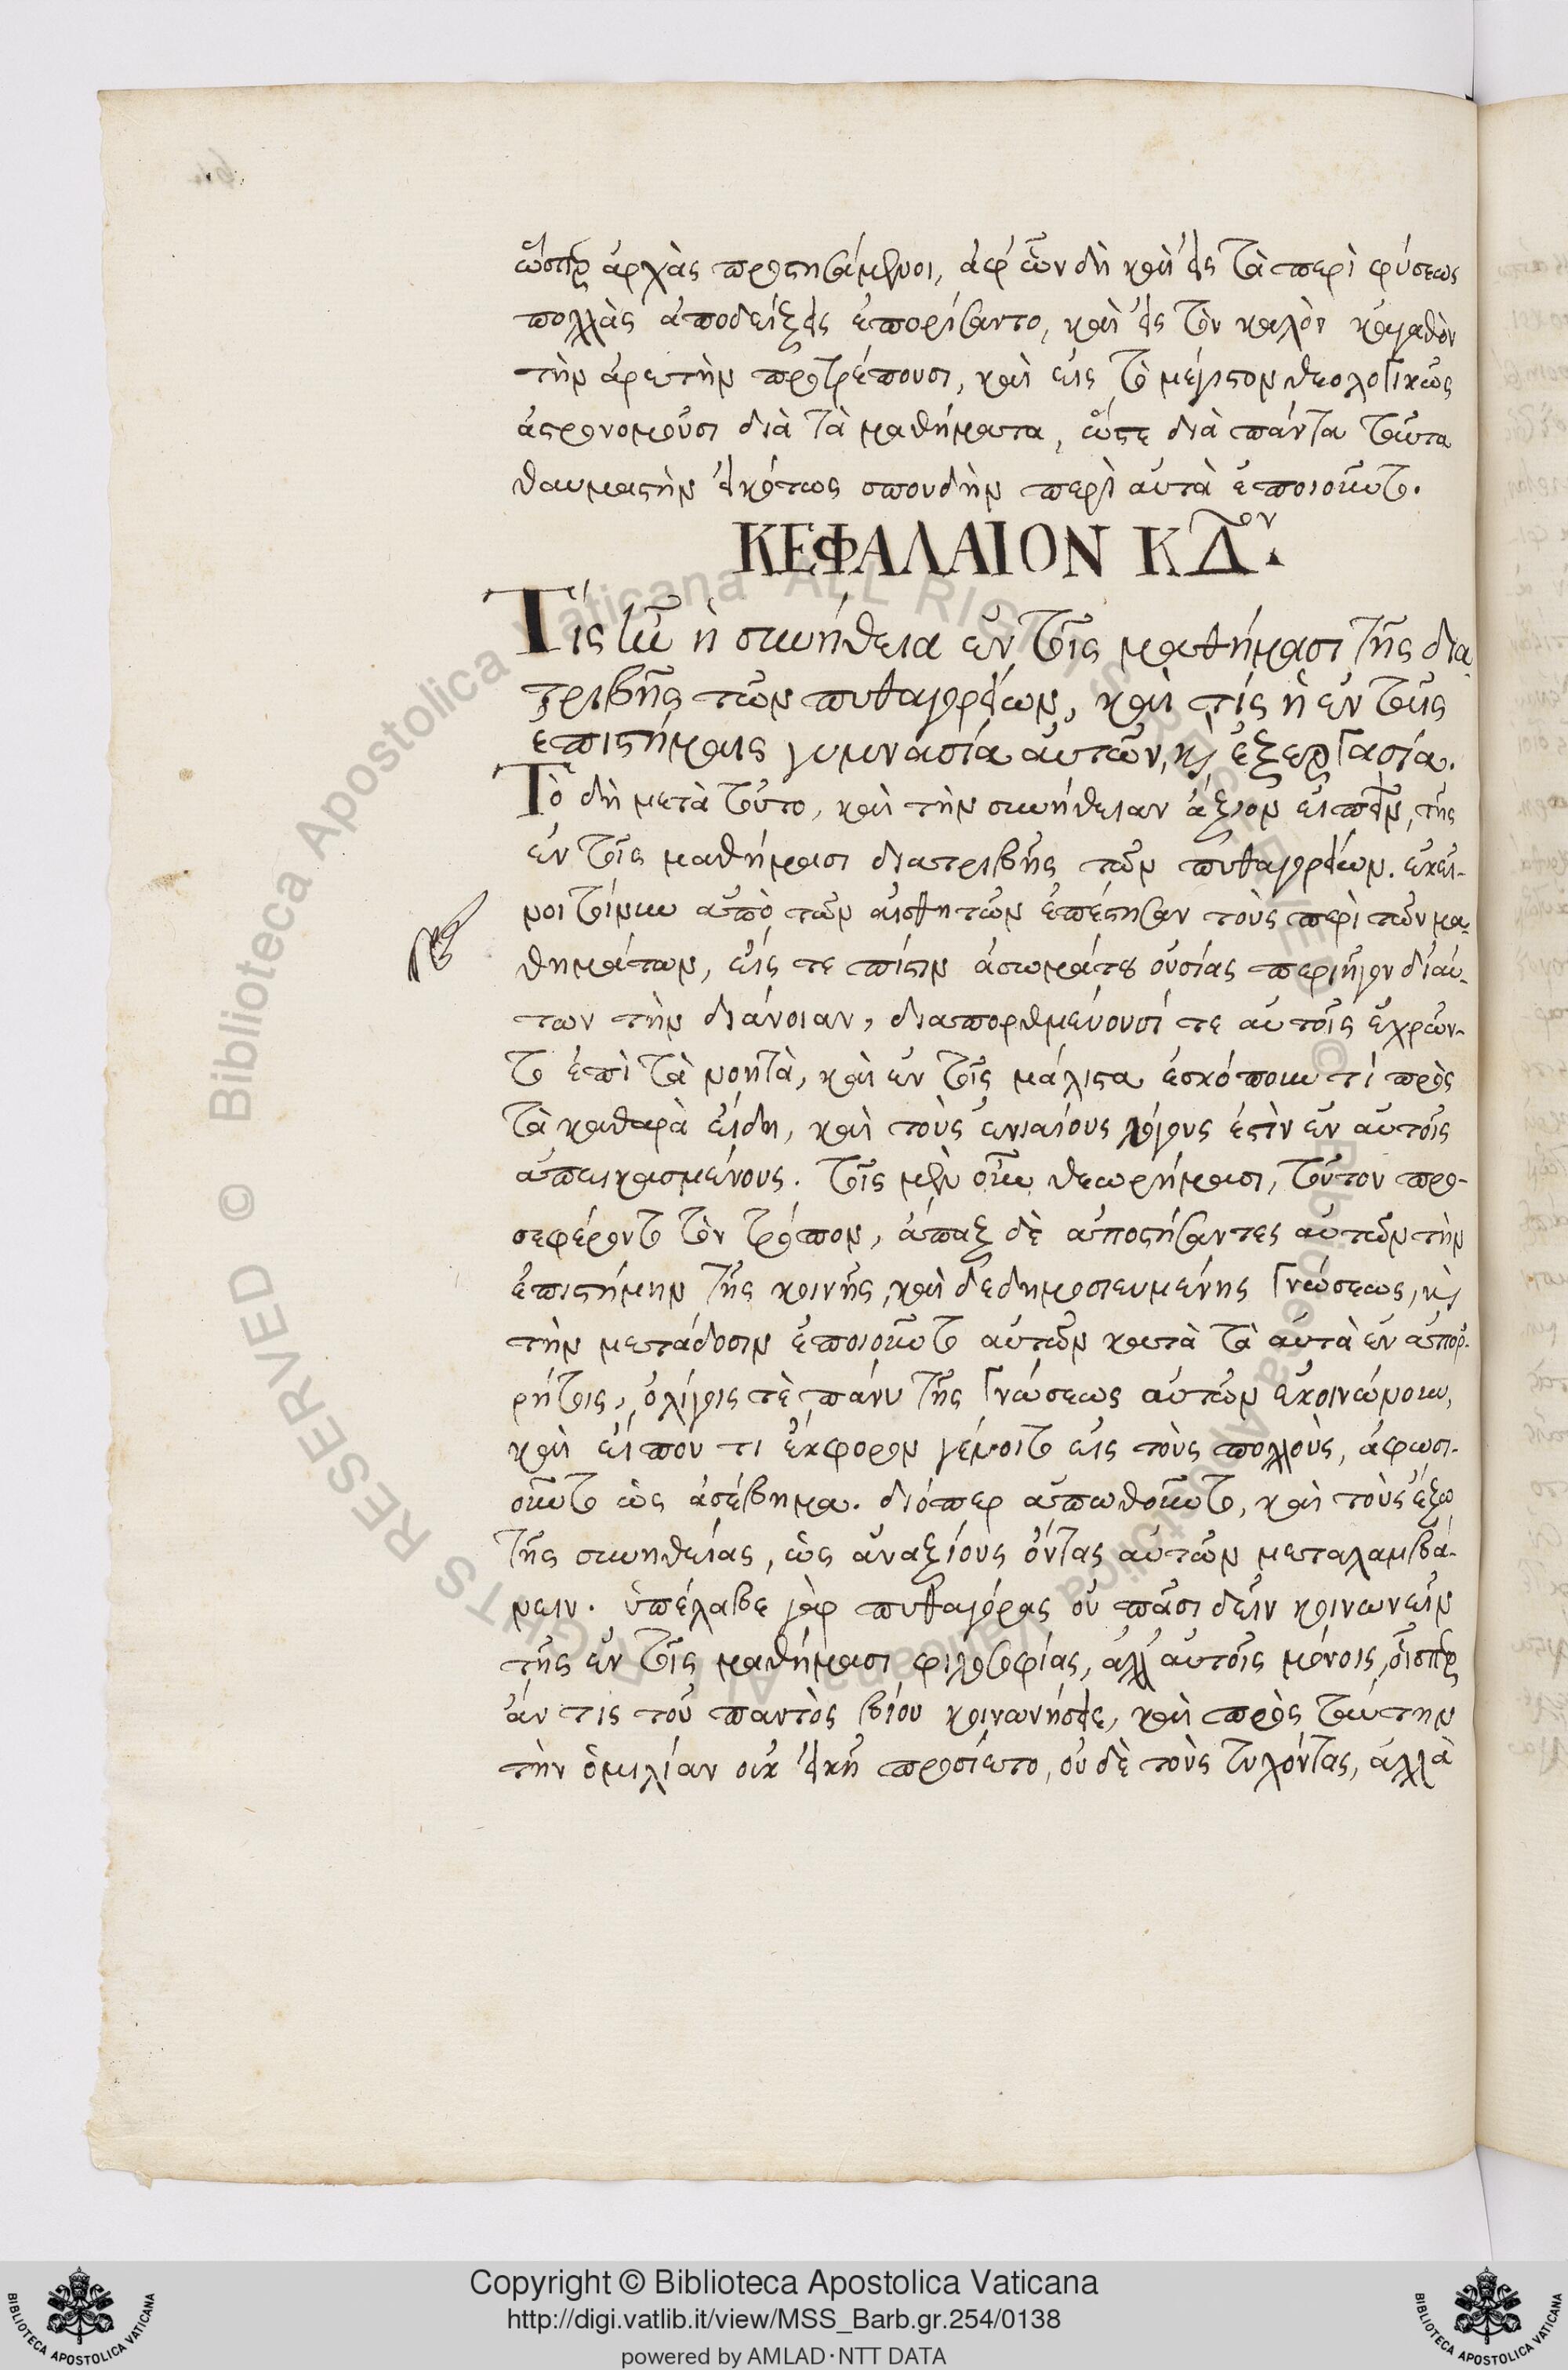 ὥσπερ ἀρχὰς προστησάμενοι, ἀφ' ὧν δὴ καὶ εἰς τὰ περὶ φύσεως
πολλὰς ἀποδείξεις ἐπορίσαντο, καὶ εἰς τὸν καλὸν κἀγαθὸν
τὴν ἀρετὴν προτρέπουσι, καὶ εἰς τὸ μέγιστον θεολογικῶς
ἀστρονομοῦσι διὰ τὰ μαθήματα, ὥστε διὰ πάντα ταῦτα
θαυμαστὴν εἰκότως σπουδὴν περὶ αὐτὰ ἐποιοῦντο.
ΚΕΦΑΛΑΙΟΝ ΚΔον.
Τίς ἦν ἡ συνήθεια ἐν τοῖς μαθήμασι τῆς δια
τριβῆς τῶν πυθαγορείων, καὶ τίς ἡ ἐν ταῖς
ἐπιστήμαις γυμνασία αὐτῶν, καὶ ἐξεργασία.
Τὸ δὴ μετὰ τοῦτο, καὶ τὴν συνήθειαν ἄξιον εἰπεῖν, τῆς
ἐν τοῖς μαθήμασι διατριβῆς τῶν πυθαγορείων. ἐκεῖ-
νοι τοίνυν ἀπὸ τῶν αἰσθητῶν ἐπέστησαν τοὺς περὶ τῶν μα-
θημάτων, εἰς τε πίστιν ἀσωμάτου οὐσίας περιῆγον δι' αὐ-
των τὴν διάνοιαν, διαπορθμεύουσί τε αὐτοῖς ἐχρῶν-
το ἐπὶ τὰ νοητὰ, καὶ ἐν τοῖς μάλιστα ἐσκόπουν τί πρὸς
τὰ καθαρὰ εἴδη, καὶ τοὺς ἑνιαίους λόγους ἐστὶν ἐν αὐτοῖς
ἀπεικασμένους. τοῖς μὲν οὖν θεωρήμασι, τοῦτον προ-
σεφέροντο τὸν τρόπον, ἅπαξ δὲ ἀποστήσαντες αὐτῶν τὴν
ἐπιστήμην τῆς κοινῆς, καὶ δεδημοσιευμένης γνώσεως, καὶ
τὴν μετάδοσιν ἐποιοῦντο αὐτῶν κατὰ τὰ αὐτὰ ἐν ἀπορ-
ρήτοις, ὀλίγοις τὲ πάνυ τῆς γνώσεως αὐτῶν ἐκοινώνουν,
καὶ εἴ που τι ἔκφορον γένοιτο εἰς τοὺς πολλοὺς, ἀφωσι-
οῦντο ὡς ἀσέβημα. διόπερ ἀπωθοῦντο, καὶ τοὺς ἔξω
τῆς συνηθείας, ὡς ἀναξίους ὄντας αὐτῶν μεταλαμβά-
νειν. ὑπέλαβε γὰρ πυθαγόρας οὐ πᾶσι δεῖν κοινωνεῖν
τῆς ἐν τοῖς μαθήμασι φιλοσοφίας, ἀλλ' αὐτοῖς μόνοις, οἷσπερ
ἄν τις τοῦ παντὸς βίου κοινωνήσειε, καὶ πρὸς ταύτην
τὴν ὁμιλίαν οὐκ εἰκῆ προσίετο, οὐδὲ τοὺς τυχόντας, ἀλλὰ
© Biblioteca Apostolica Vaticana ALL RIGHTS RESERVED
© Biblioteca Apostolica Vaticana ALL RIGHTS RESERVED
Copyright © Biblioteca Apostolica Vaticana
http://digi.vatlib.it/view/MSS_Barb.gr.254/0138
powered by AMLAD·NTT DATA
BIBLIOTECA APOSTOLICA VATICANA
BIBLIOTECA APOSTOLICA VATICANA